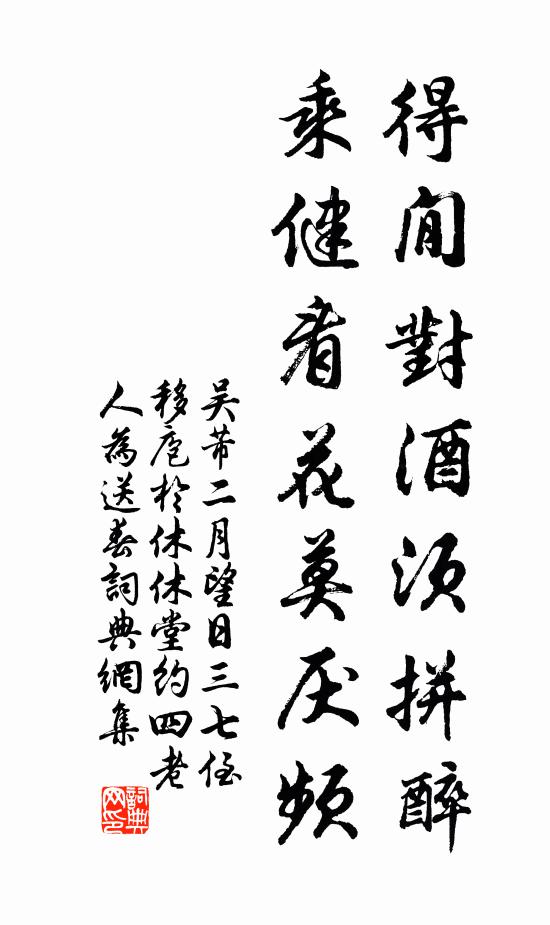 得閒對酒須拼醉
乘健看花莫厌頻
吴芾二月望日三七侄
移庖於休休堂約四老
人為送春詞典網集
詞典网印